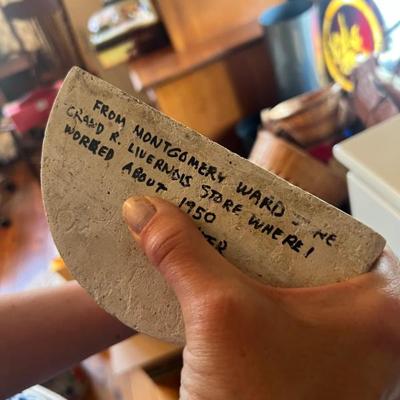 FROM MONTGOMERY WARD - THE
GRAND R. LIVERNOIS STORE WHERE I
WORKED ABOUT 1950